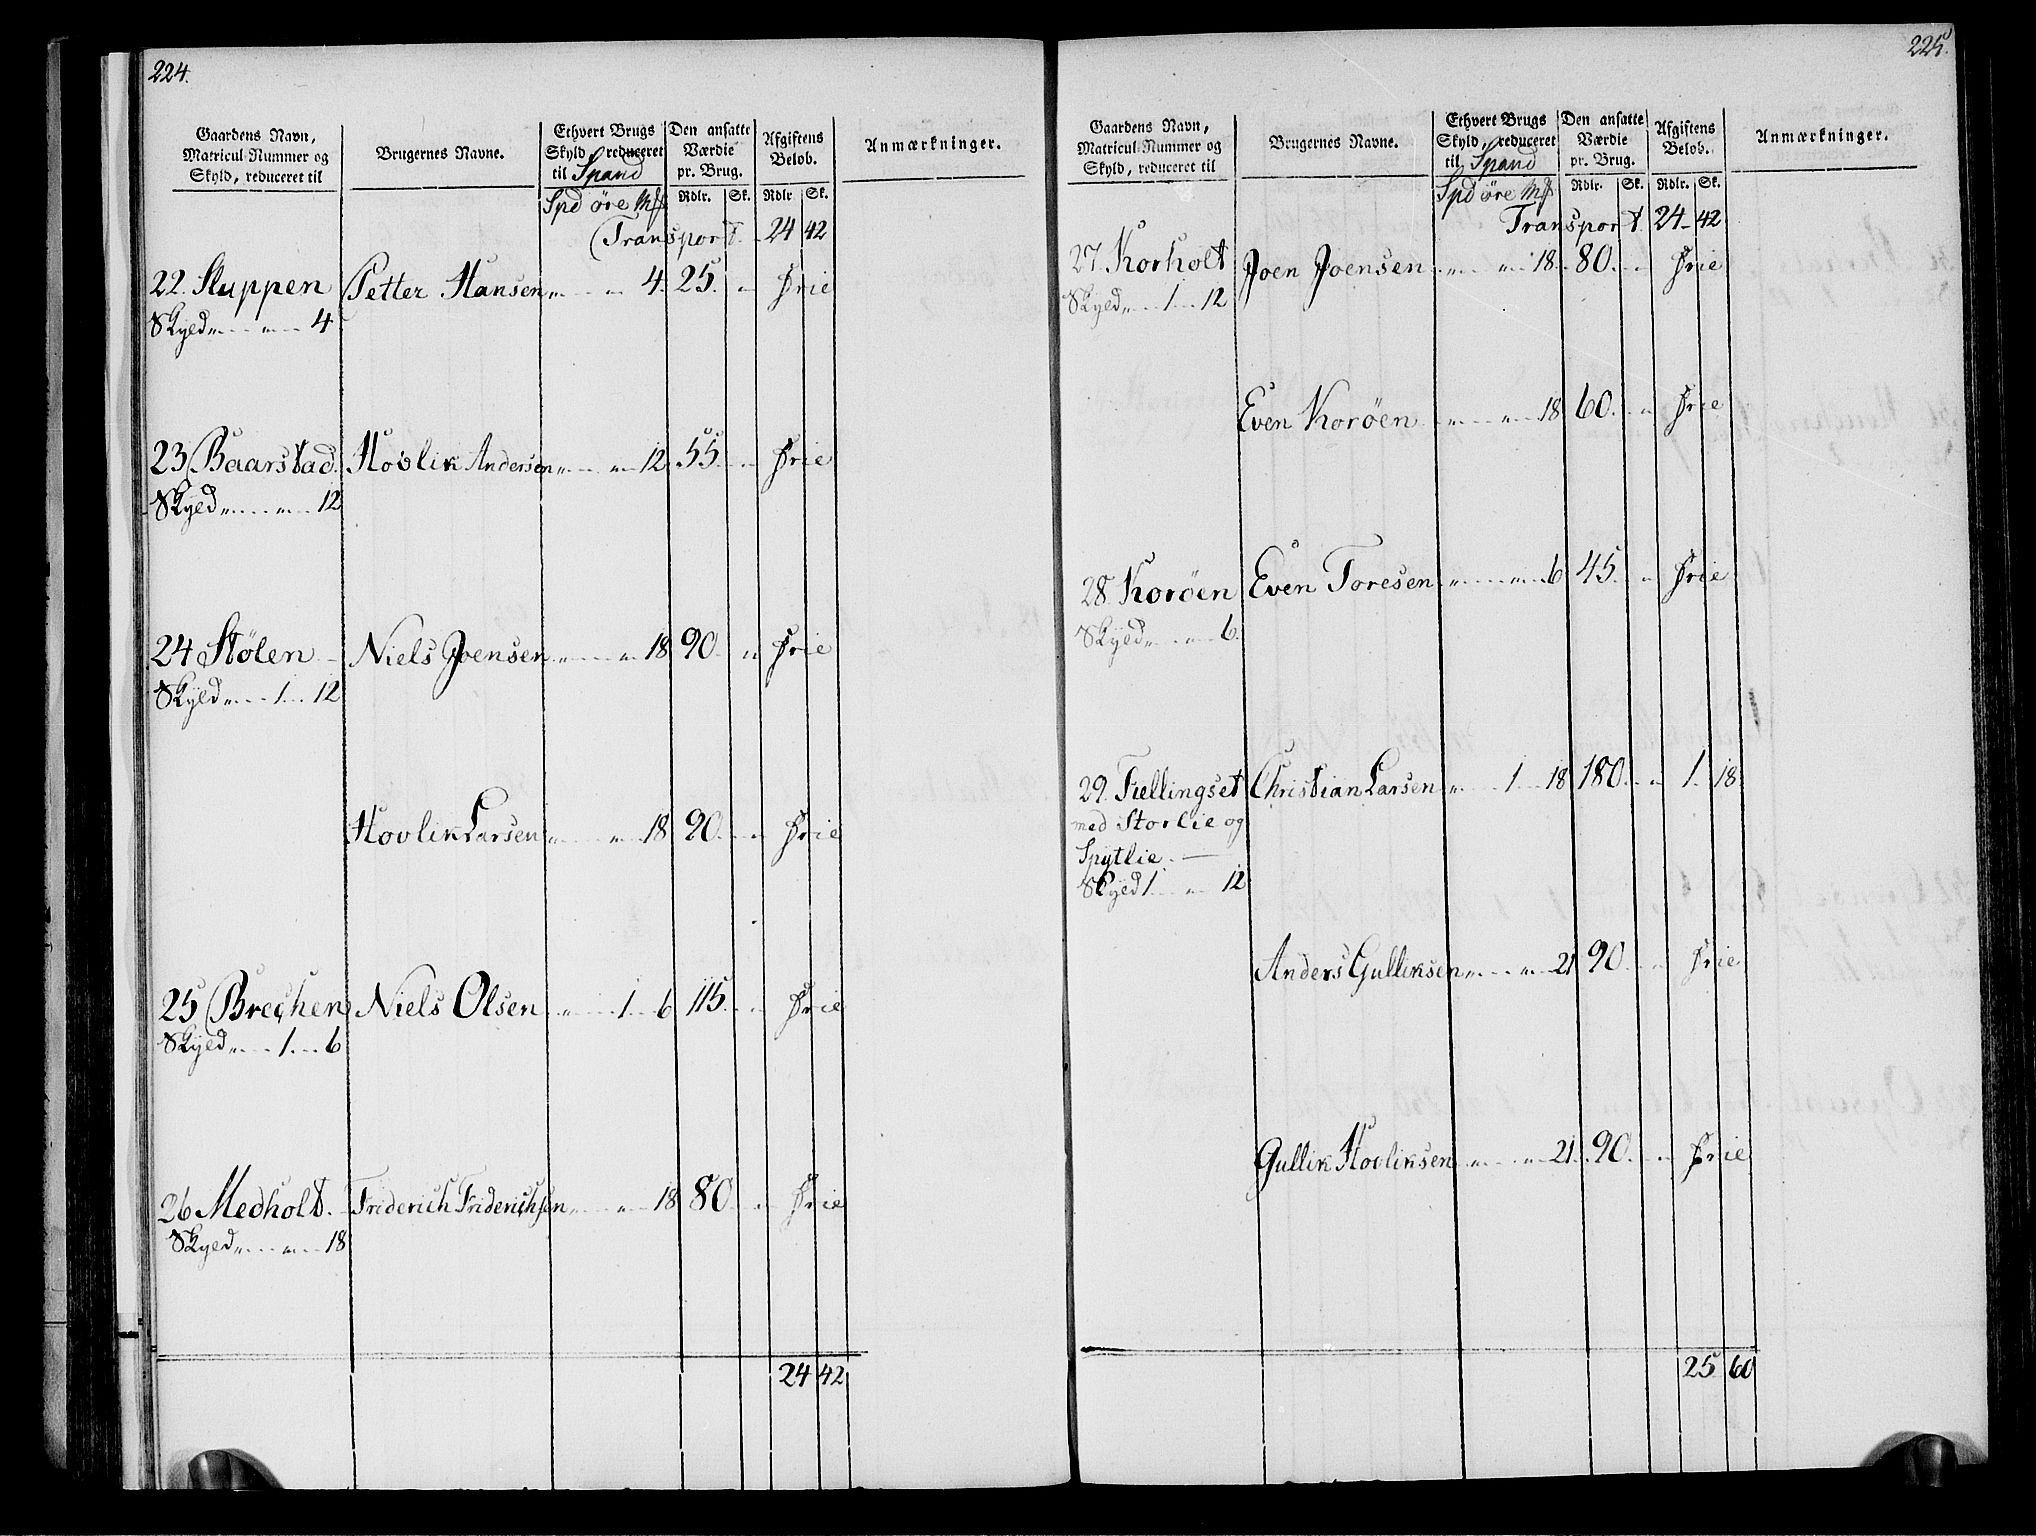 224.
Gaardens Navn, Matricul-Nummer og Skyld, reduceret til
Brugernes Navne.
Ethvert Brugs Skyld, reduceret til Spand
Den ansatte Værdie pr. Brug.
Afgiftens Beløb.
Anmærkninger.
Spd øre Mk
Rdlr. Sk. Rdlr. Sk.
Transport. 24 42
22. Sluppen Petter Hansen „ „ 4. 25. „ Frie
Skyld „ „ 4
23 Baarstad. Hovlik Andersen „ „ 12 55. „ Frie
Skyld „ „ 12
24 Stølen Niels Joensen „ „ 18 90. „ Frie
Skyld „ 1 12
Hovlik Larsen „ „ 18 90. „ Frie
25 Brechen Niels Olsen „ 1 6 115. „ Frie
Skyld „ 1 6
26 Medholt. Friderich Friderichsen „ „ 18 80 „ Frie
Skyld „ „ 18
24 42
225.
Gaardens Navn, Matricul-Nummer og Skyld, reduceret til
Brugernes Navne.
Ethvert Brugs Skyld, reduceret til Spand
Den ansatte Værdie pr. Brug.
Afgiftens Beløb.
Anmærkninger.
Spd øre Mk
Rdlr. Sk. Rdlr. Sk.
Transport. 24 42
27. Korholt Joen Joensen „ „ 18. 80. „ Frie
Skyld „ 1 12
Even Korøen „ „ 18 60. „ Frie
28. Korøen Even Toresen „ „ 6 45. „ Frie
Skyld „ „ 6.
29. Fiellingset Christian Larsen „ 1 18 180. „ 1. 18.
med Storlie og
Spytlie.
Skyld 1 „ 12
Anders Gulliksen „ „ 21 90. „ Frie
Gullik Hovliksen „ „ 21. 90. „ Frie
25 60